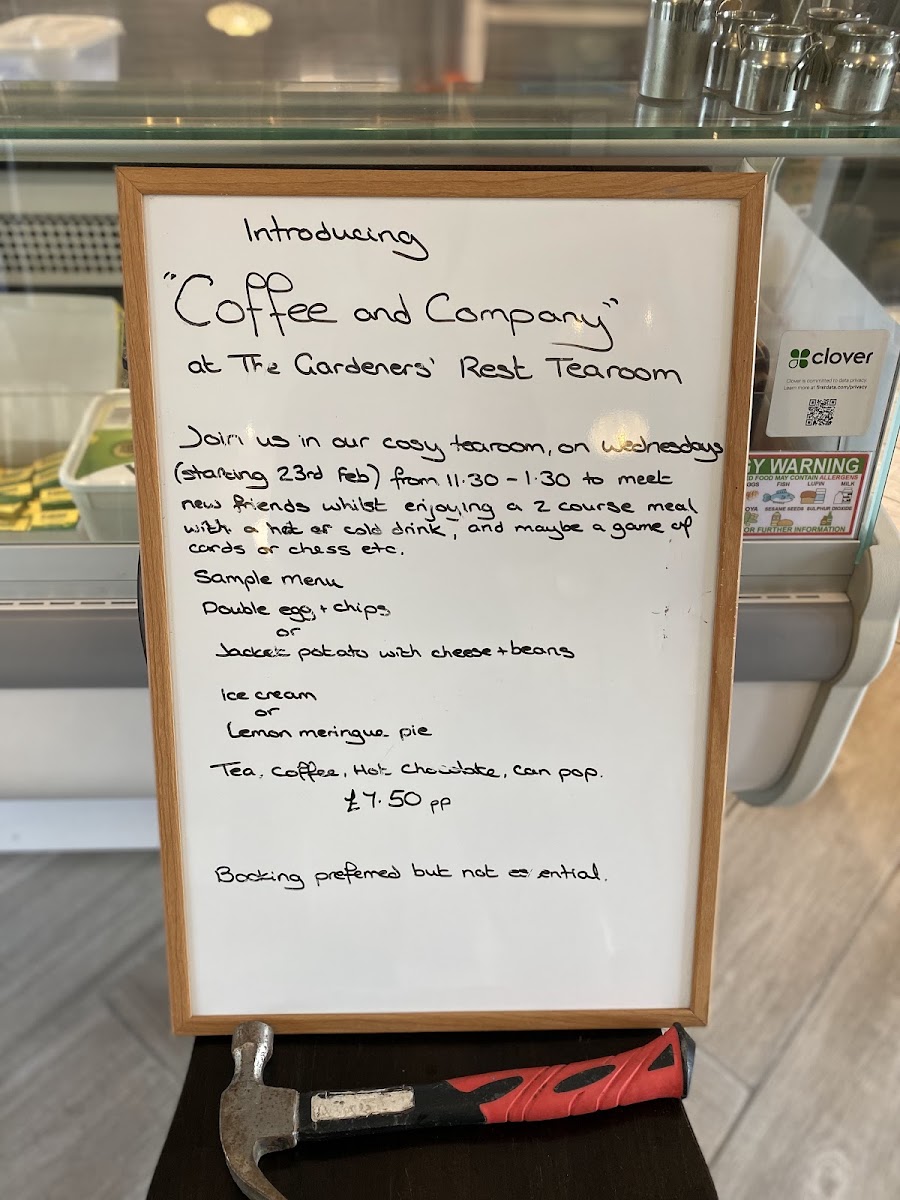 Introducing
"Coffee and Company"
at The Gardeners' Rest Tearoom
Join us in our cosy tearoom, on Wednesdays
(starting 23rd Feb) from 11.30 - 1.30 to meet
new friends whilst enjoying a 2 course meal
with a hot or cold drink, and maybe a game of
cards or chess etc.
Sample menu
Double egg + chips
or
Jacket potato with cheese + beans
Ice cream
or
Lemon meringue pie
Tea, Coffee, Hot Chocolate, Can pop.
£7.50 pp
Booking preferred but not es ential.
clover
Clover is committed to data privacy
Learn more at firstdata.com/privacy
GY WARNING
D FOOD MAY CONTAIN ALLERGENS
GGS FISH LUPIN MILK
OYA SESAME SEEDS SULPHUR DIOXIDE
OR FURTHER INFORMATION